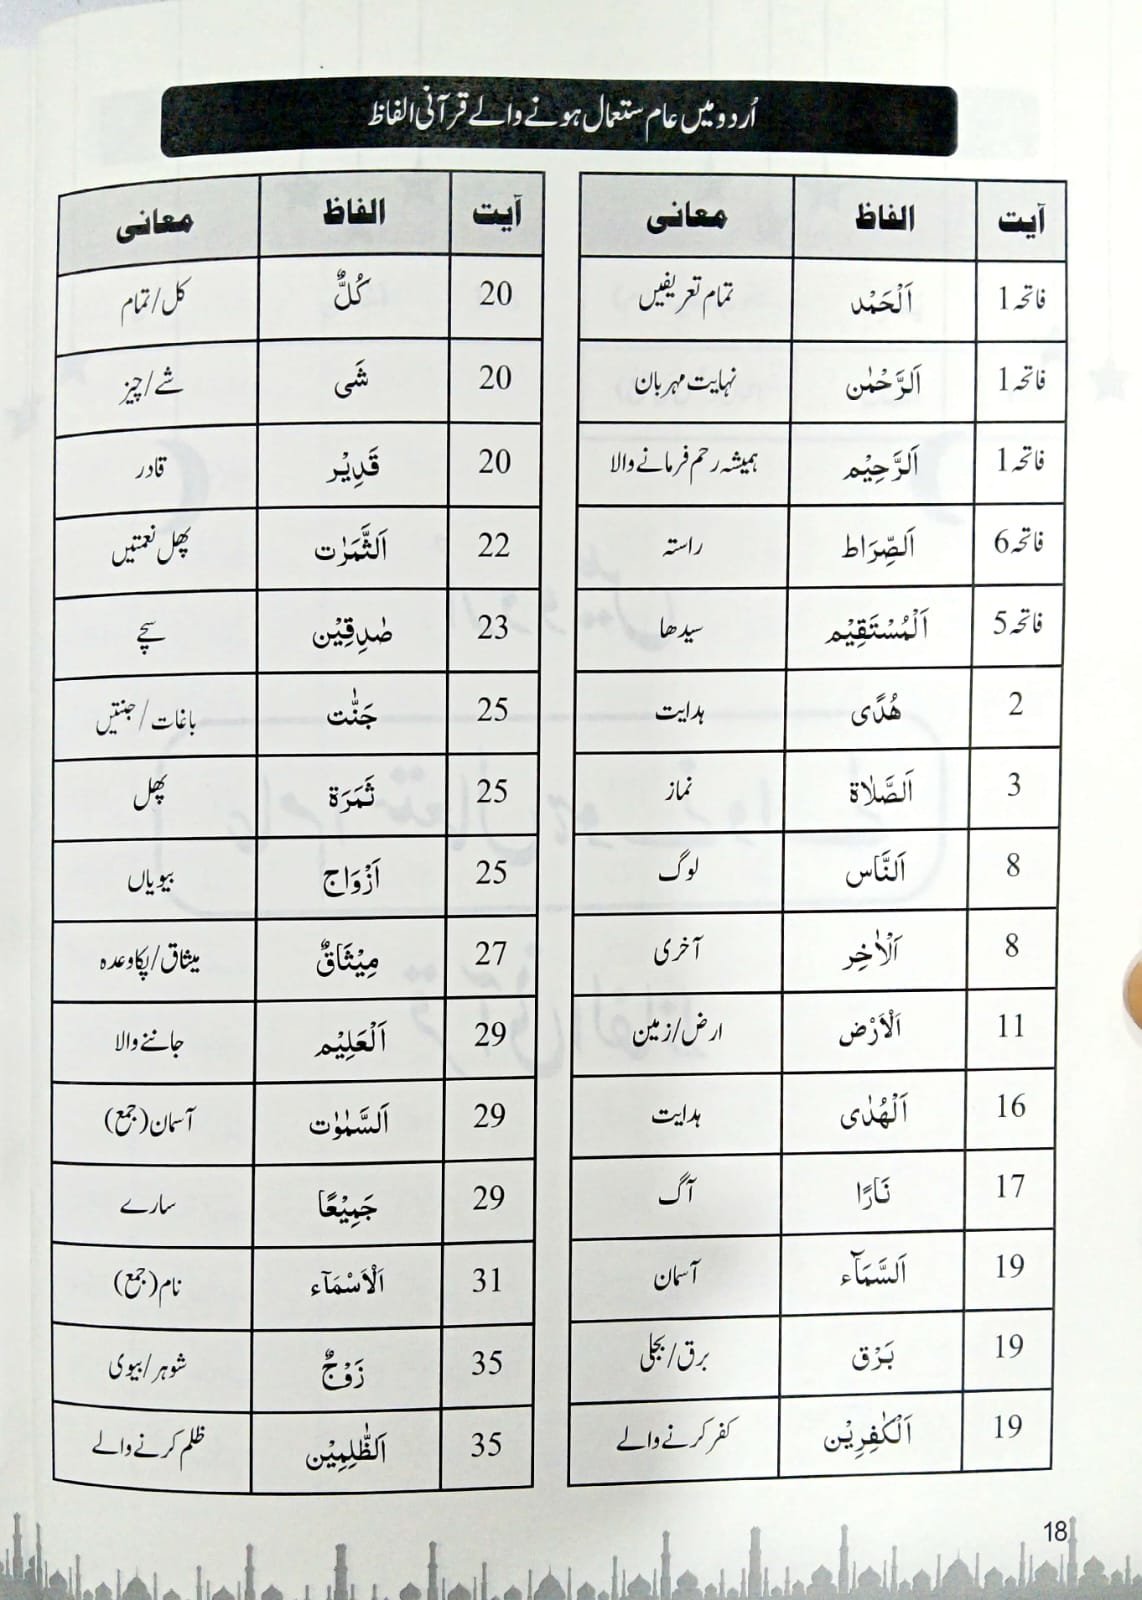 اُردو میں عام ستعمال ہونے والے قرآنی الفاظ
آیت الفاظ معانی
فاتحہ 1 اَلْحَمْد تمام تعریفیں
فاتحہ 1 اَلرَّحْمٰن نہایت مہربان
فاتحہ 1 اَلرَّحِیْم ہمیشہ رحم فرمانے والا
فاتحہ 6 اَلصِّرَاط راستہ
فاتحہ 5 اَلْمُسْتَقِیْم سیدھا
2 ھُدًی ہدایت
3 اَلصَّلَاۃ نماز
8 اَلنَّاس لوگ
8 اَلْاٰخِر آخری
11 اَلْاَرْض ارض/زمین
16 اَلْھُدٰی ہدایت
17 نَارًا آگ
19 اَلسَّمَآء آسمان
19 بَرْق برق/بجلی
19 اَلْکٰفِرِیْن کفر کرنے والے
آیت الفاظ معانی
20 کُلٌّ کل/تمام
20 شَی شے/چیز
20 قَدِیْر قادر
22 اَلثَّمَرٰت پھل نعمتیں
23 صٰدِقِیْن سچے
25 جَنّٰت باغات/جنتیں
25 ثَمَرَة پھل
25 اَزْوَاج بیویاں
27 مِیْثَاقٌ میثاق/پکا وعدہ
29 اَلْعَلِیْم جاننے والا
29 اَلسَّمٰوٰت آسمان (جمع)
29 جَمِیْعًا سارے
31 اَلْاَسْمَآء نام (جمع)
35 زَوْجٌ شوہر/بیوی
35 اَلظّٰلِمِیْن ظلم کرنے والے
18